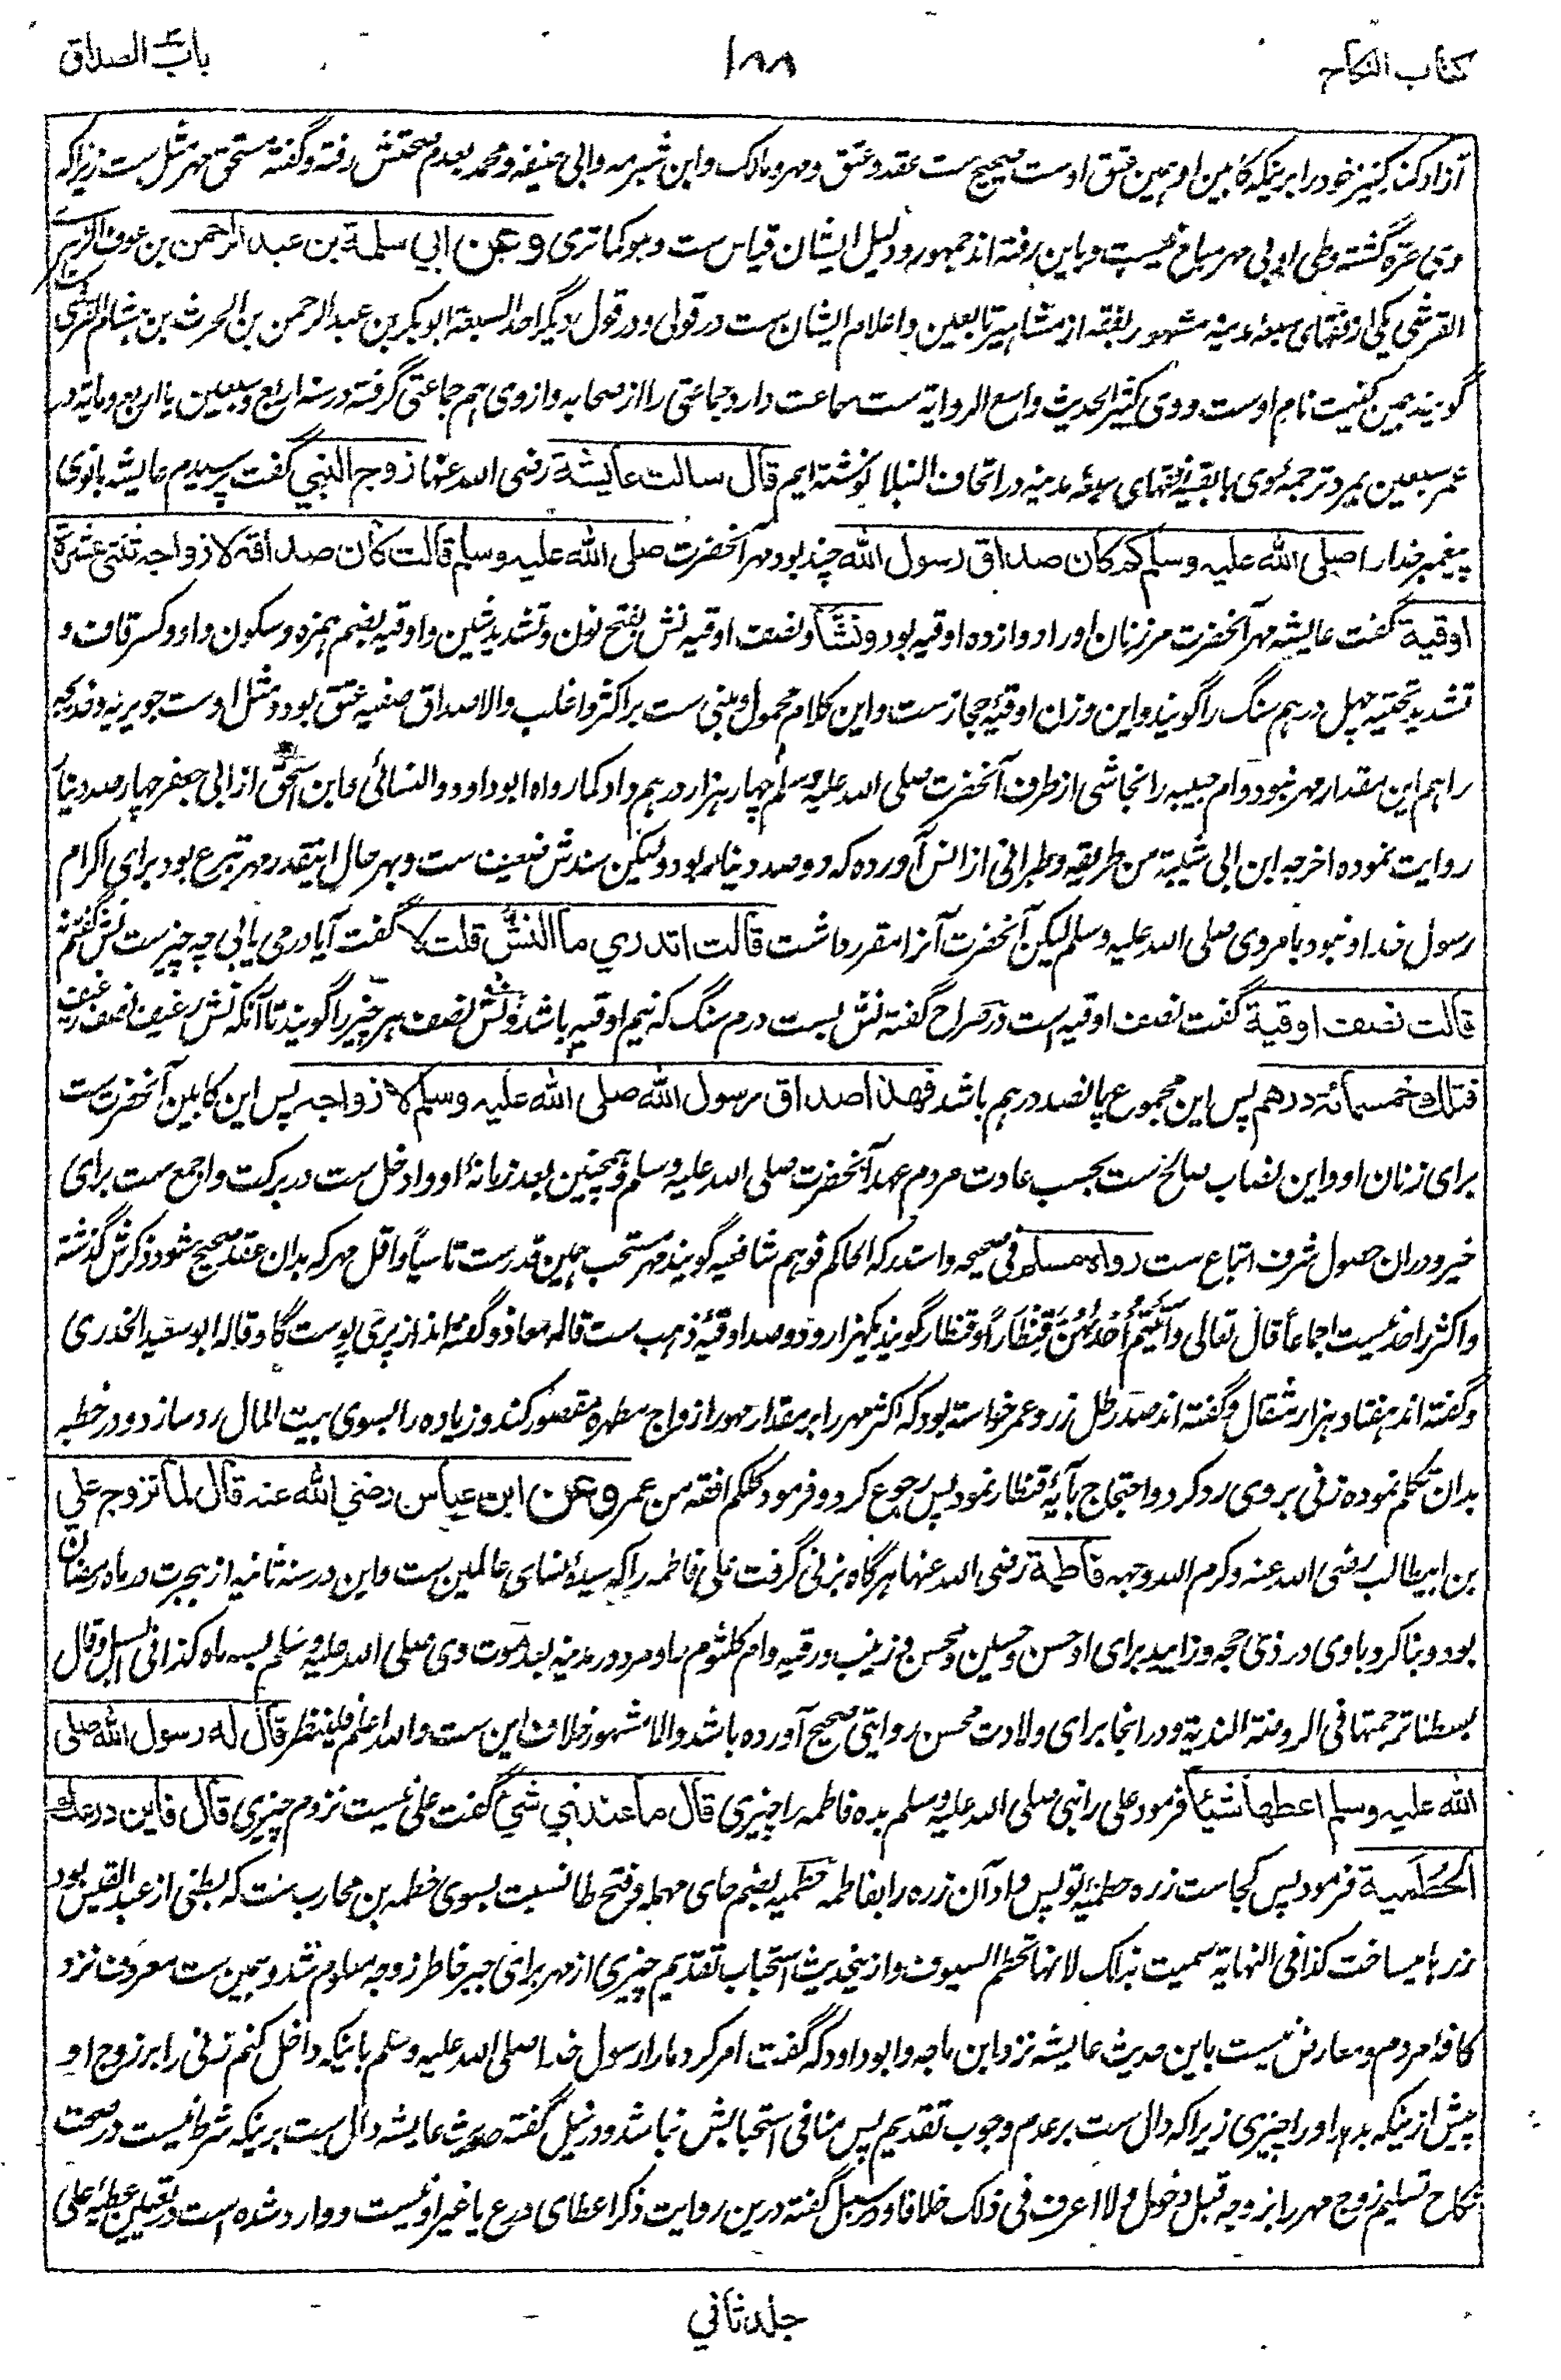 كتاب النكاح ١٨٨ باب الصداق
آزاد کند کنیز خود را برینکه کابین او همین عتق اوست صحیح ست عقد و عتق و مهر و مالک و ابن شبرمه و ابی حنیفه و محمد بعدم صحتش رفته و گفته مستحق مهر مثل ست زیرا که
وی حره گشته وطی او بی مهر مباغ نیست و باین رفته اند جمهور و دلیل ایشان قیاس ست و هو کما تری وعن ابي سلمة بن عبد الرحمن بن عوف الزهري
القرشی یکی از فقهای سبعه مدینه مشهور بفقه از مشاهیر تابعین و اعلام ایشان ست در قولی و در قول دیگر احد السبعة ابو بکر بن عبد الرحمن بن الحرث بن هشام القرشی
گویند همین کنیت نام اوست و وی کثیر الحدیث واسع الروایة ست سماعت دارد جماعتی را از صحابه و از وی هم جماعتی گرفته در سنه اربع و سبعین یا اربع و مایة در
عمر سبعین بمرد ترجمه وی با بقیه فقهای سبعه مدینه در اتحاف النبلا نوشته ایم قال سالت عايشة رضی الله عنها زوج النبي گفت پرسیدم عایشه بانوی
پیغمبر خدا را صلى الله عليه وسلم كم كان صداق رسول الله چند بود مهر آنحضرت صلى الله عليه وسلم قالت كان صداقه لازواجه ثنتي عشرة
اوقية گفت عایشه مهر آنحضرت مر زنان او را دوازده اوقیه بود ونشا و نصف اوقیه نش بفتح نون و تشدید شین و اوقیه بضم همزه و سکون واو و کسر قاف و
تشدید تحتیه چهل درهم سنگ را گویند و این وزن اوقیه حجازست و این کلام محمول و مبنی ست بر اکثر و اغلب والا صداق صفیه عتق بود و مثل اوست جویریه و خدیجه
را هم این مقدار مهر نبود و ام حبیبه را نجاشی از طرف آنحضرت صلی الله علیه وسلم چهار هزار درهم داد کما رواه ابو داود و النسائی و ابن اسحق از ابی جعفر چهار صد دینار
روایت نموده اخرجه ابن ابی شیبة من طریقه و طبرانی از انس آورده که دو صد دینار بود و لیکن سندش ضعیف ست و بهر حال اینقدر مهر تبرع بود برای اکرام
رسول خدا و نبود بامر وی صلی الله علیه وسلم لیکن آنحضرت آنرا مقرر داشت قالت اتدري ما النش قلت لا گفت آیا در می یابی چه چیزست نش گفتم
قالت نصف اوقية گفت نصف اوقیه است در صراح گفته نش بست درم سنگ که نیم اوقیه باشد و نش نصف هر چیز را گویند تا آنکه نش رغیف نصف رغیف
فتلك خمسمائة درهم پس این مجموع پانصد درهم باشد فهذا صداق رسول الله صلى الله عليه وسلم لازواجه پس این کابین آنحضرت ست
برای زنان او و این نصاب صالح ست بحسب عادت مردم عهد آنحضرت صلی الله علیه وسلم و همچنین بعد زمانه او و ادخل ست در برکت و اجمع ست برای
خیر و در ان حصول شرف اتباع ست رواه مسلم فی صحیحه و استدرکه الحاکم فوهم شافعیه گویند مهر مستحب همین قدرست تاسیا و اقل مهر که بدان عقد صحیح شود ذکرش گذشته
و اکثر را حد نیست اجماعا قال تعالی وَآتَيْتُمْ إِحْدَاهُنَّ قِنْطَارًا و قنطار گویند یکهزار و دو صد اوقیه ذهب ست قاله معاذ و گفته اند از پری پوست گاو قاله ابو سعید الخدری
و گفته اند هفتاد هزار مثقال و گفته اند صد رطل زر و عمر خواسته بود که اکثر مهر را بر مقدار مهور ازواج مطهره مقصور کند و زیاده را بسوی بیت المال رد سازد و در خطبه
بدان تکلم نموده زنی بر وی رد کرد و احتجاج بآیه قنطار نمود پس رجوع کرد و فرمود کلکم افقه من عمر وعن ابن عباس رضي الله عنه قال لما تزوج علي
بن ابیطالب رضی الله عنه و کرم الله وجهه فاطمة رضی الله عنها هرگاه بزنی گرفت علی فاطمه را که سیده نسای عالمین ست و این در سنه ثانیه از هجرت در ماه رمضان
بود و بنا کرد با وی در ذی حجه و زایید برای او حسن و حسین و محسن و زینب و رقیه و ام کلثوم را و مرد در مدینه بعد موت وی صلی الله علیه وسلم بسه ماه کذا فی السبل و قال
بسطنا ترجمتها فی الروضة الندیة و در اینجا برای ولادت محسن روایتی صحیح آورده باشد والا مشهور خلاف این ست والله اعلم فلینظر قال له رسول الله صلى
الله عليه وسلم اعطها شيئا فرمود علی را نبی صلی الله علیه وسلم بده فاطمه را چیزی قال ما عندي شي گفت علی نیست نزدم چیزی قال فاين درعك
الحُطَمية فرمود پس کجاست زره حطمیه تو پس داد آن زره را بفاطمه حطمیه بضم حای مهمله و فتح طا نسبت بسوی حطمه بن محارب ست که بطنی از عبد القیس بود
زرها میساخت کذا فی النهایة سمیت بذلک لانها تحطم السیوف و ازینحدیث استحباب تقدیم چیزی از مهر برای جبر خاطر زوجه معلوم شد و همین ست معروف نزد
کافه مردم و معارض نیست باین حدیث عایشه نزد ابن ماجه و ابو داود که گفت امر کرد مارا رسول خدا صلی الله علیه وسلم باینکه داخل کنم زنی را بر زوج او
پیش ازینکه بدهد او را چیزی زیرا که دال ست بر عدم وجوب تقدیم پس منافی استحبابش نباشد و در نیل گفته حدیث عایشه دال ست برینکه شرط نیست در صحت
نکاح تسلیم زوج مهر را بزوجه قبل دخول و لا اعرف فی ذلک خلافا و در سبل گفته درین روایت ذکر اعطای درع یا غیر او نیست و وارد شده است در تعیین عطیه علی
جلد ثاني